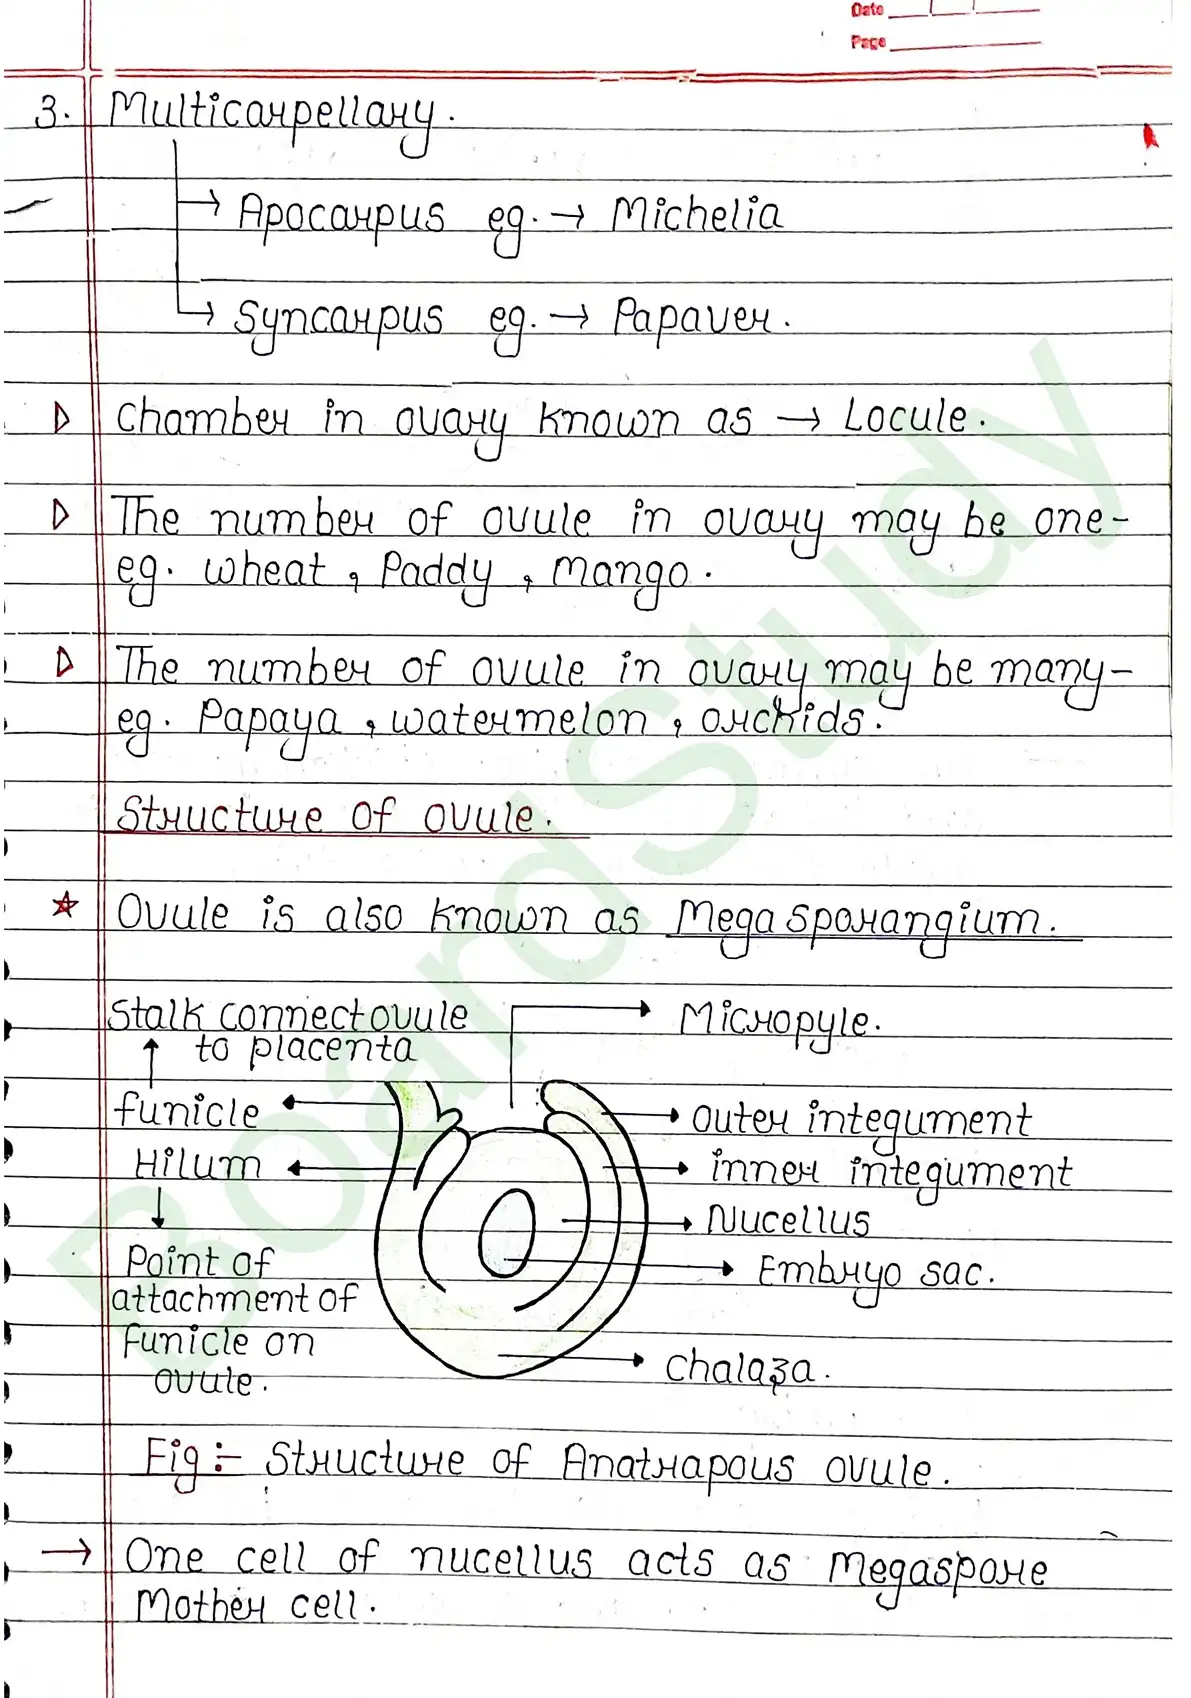 Date
Page
3. Multicarpellary.
→ Apocarpus eg. → Michelia
→ Syncarpus eg. → Papaver.
▷ Chamber in ovary known as → Locule.
▷ The number of ovule in ovary may be one-
eg. wheat, Paddy, mango.
▷ The number of ovule in ovary may be many-
eg. Papaya, watermelon, orchids.
Structure of ovule.
☆ Ovule is also known as Megasporangium.
Stalk connect ovule
to placenta
Micropyle.
funicle
outer integument
Hilum
inner integument
Nucellus
Point of
attachment of
funicle on
ovule.
Embryo sac.
chalaza.
Fig :- Structure of Anatrapous ovule.
→ One cell of nucellus acts as Megaspore
Mother cell.
BoardStudy